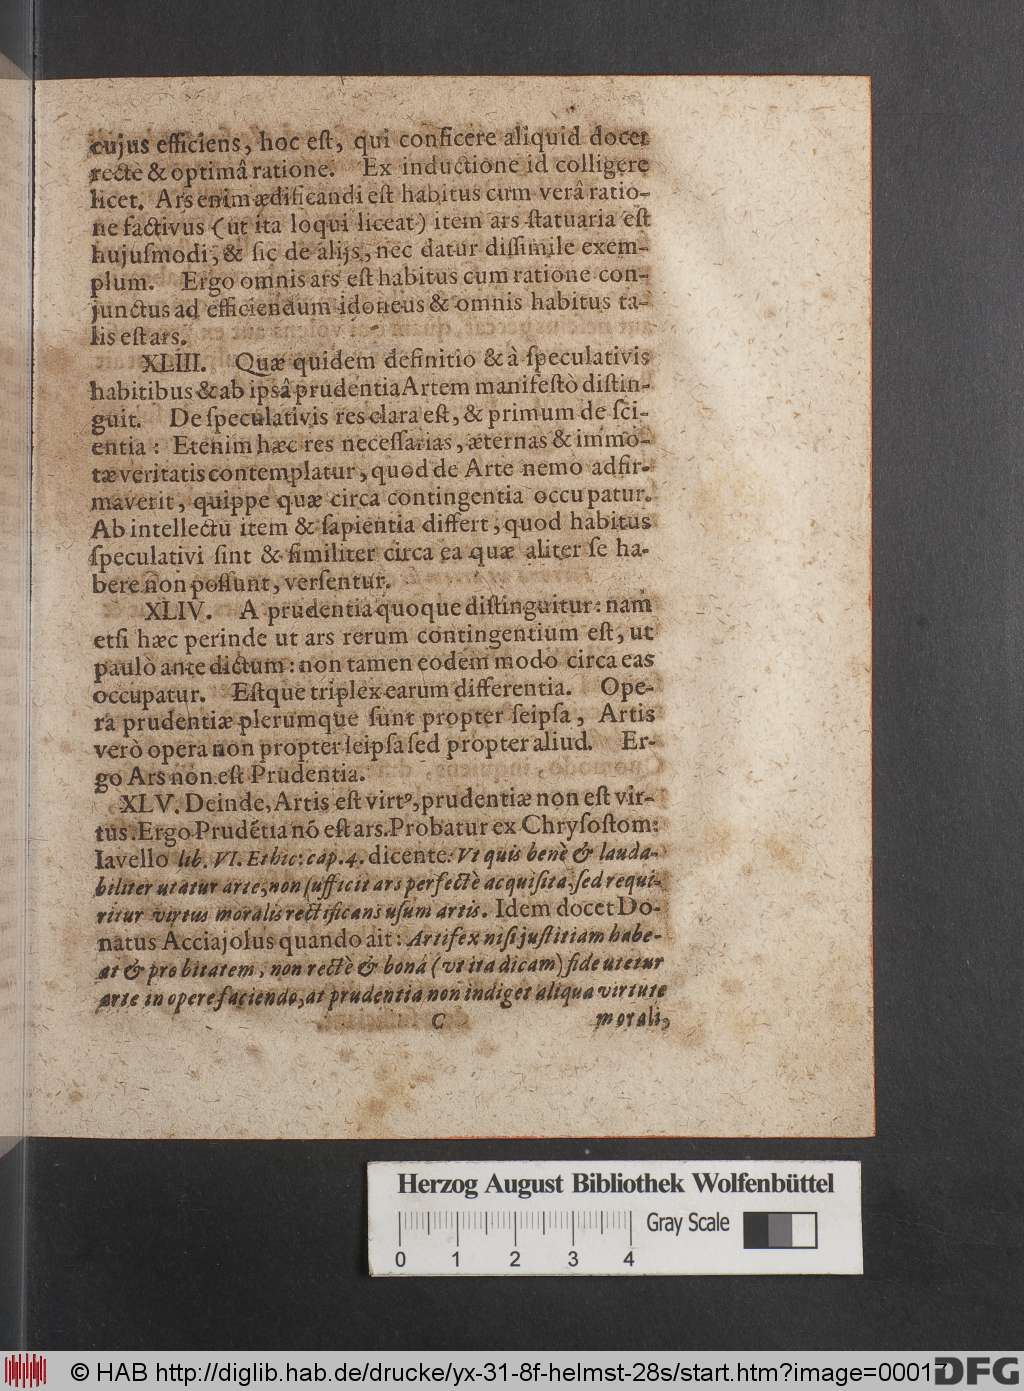 cujus efficiens, hoc eſt, qui conficere aliquid docet
recte & optimâ ratione. Ex inductione id colligere
licet. Ars enim ædificandi eſt habitus cum verâ ratio-
ne factivus (ut ita loqui liceat) item ars ſtatuaria eſt
hujuſmodi, & ſic de alijs, nec datur diſſimile exem-
plum. Ergo omnis ars eſt habitus cum ratione con-
junctus ad efficiendum idoneus & omnis habitus ta-
lis eſt ars.
XLIII. Quæ quidem definitio & à ſpeculativis
habitibus & ab ipsâ prudentia Artem manifeſtò diſtin-
guit. De ſpeculativis res clara eſt, & primum de ſci-
entia: Etenim hæc res neceſſarias, æternas & immo-
tæ veritatis contemplatur, quod de Arte nemo adfir-
maverit, quippe quæ circa contingentia occupatur.
Ab intellectū item & ſapientia differt, quod habitus
ſpeculativi ſint & ſimiliter circa ea quæ aliter ſe ha-
bere non poſſunt, verſentur.
XLIV. A prudentia quoque diſtinguitur: nam
etſi hæc perinde ut ars rerum contingentium eſt, ut
paulò ante dictum: non tamen eodem modo circa eas
occupatur. Eſtque triplex earum differentia. Ope-
ra prudentiæ plerumque ſunt propter ſeipſa, Artis
verò opera non propter ſeipſa ſed propter aliud. Er-
go Ars non eſt Prudentia.
XLV. Deinde, Artis eſt virtꝰ, prudentiæ non eſt vir-
tus. Ergo Prudētia nō eſt ars. Probatur ex Chryſoſtom:
Iavello lib. VI. Ethic: cap. 4. dicente: Vt quis benè & lauda-
biliter utatur arte, non ſufficit ars perfectè acquiſita, ſed requi-
ritur virtus moralis rectificans uſum artis. Idem docet Do-
natus Acciajolus quando ait: Artifex niſi juſtitiam habe-
at & probitatem, non rectè & bonâ (vt ita dicam) fide utetur
arte in opere faciendo, at prudentia non indiget aliqua virtute
C morali,
Herzog August Bibliothek Wolfenbüttel
Gray Scale
0 1 2 3 4
© HAB http://diglib.hab.de/drucke/yx-31-8f-helmst-28s/start.htm?image=00017
DFG